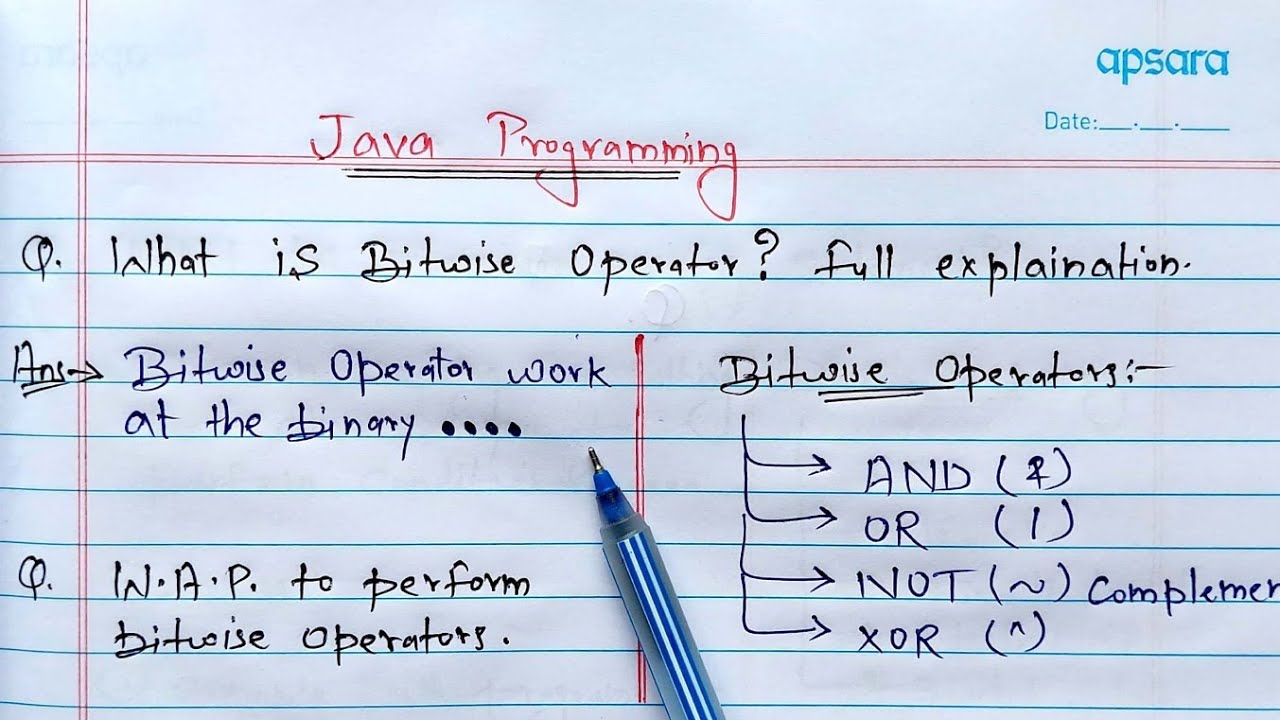 apsara
Date:__.__.____
Java Programming
Q. What is Bitwise Operator? full explaination.
Ans→ Bitwise Operator work
at the binary ••••
Q. W.A.P. to perform
bitwise operators.
Bitwise Operators:-
→ AND (&)
→ OR (|)
→ NOT (~) Complemen
→ XOR (^)